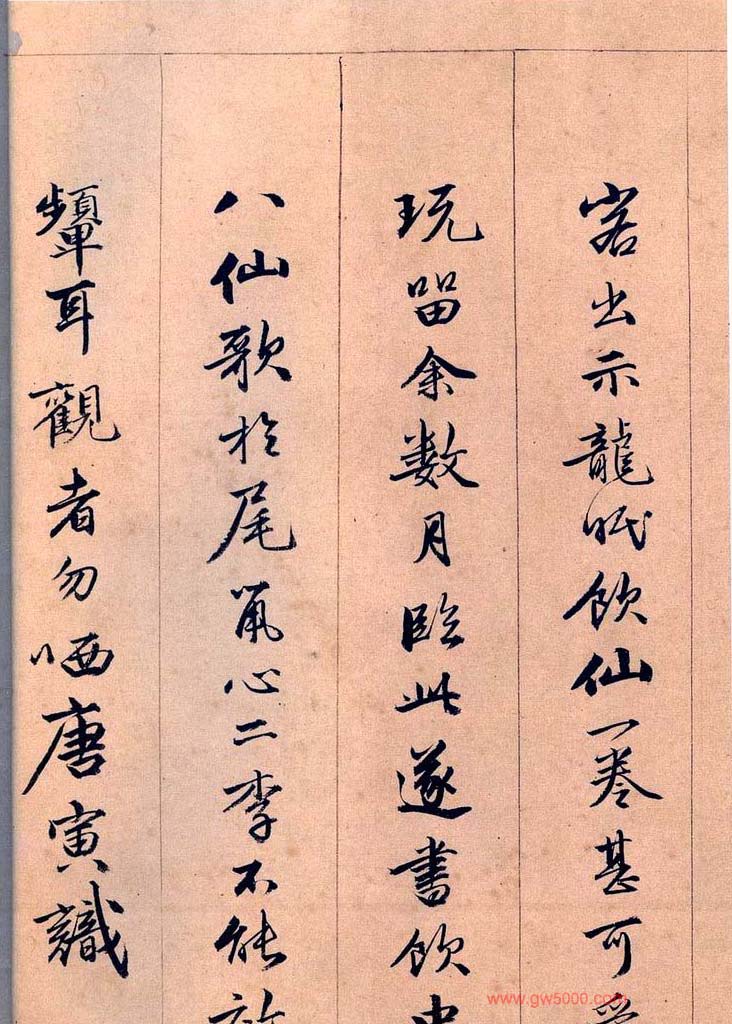 客出示龍眠飲仙一卷甚可愛
玩留余数月臨此遂書飲中
八仙歌於尾鼠心二李不能效
顰耳觀者勿哂唐寅識
www.gw5000.com